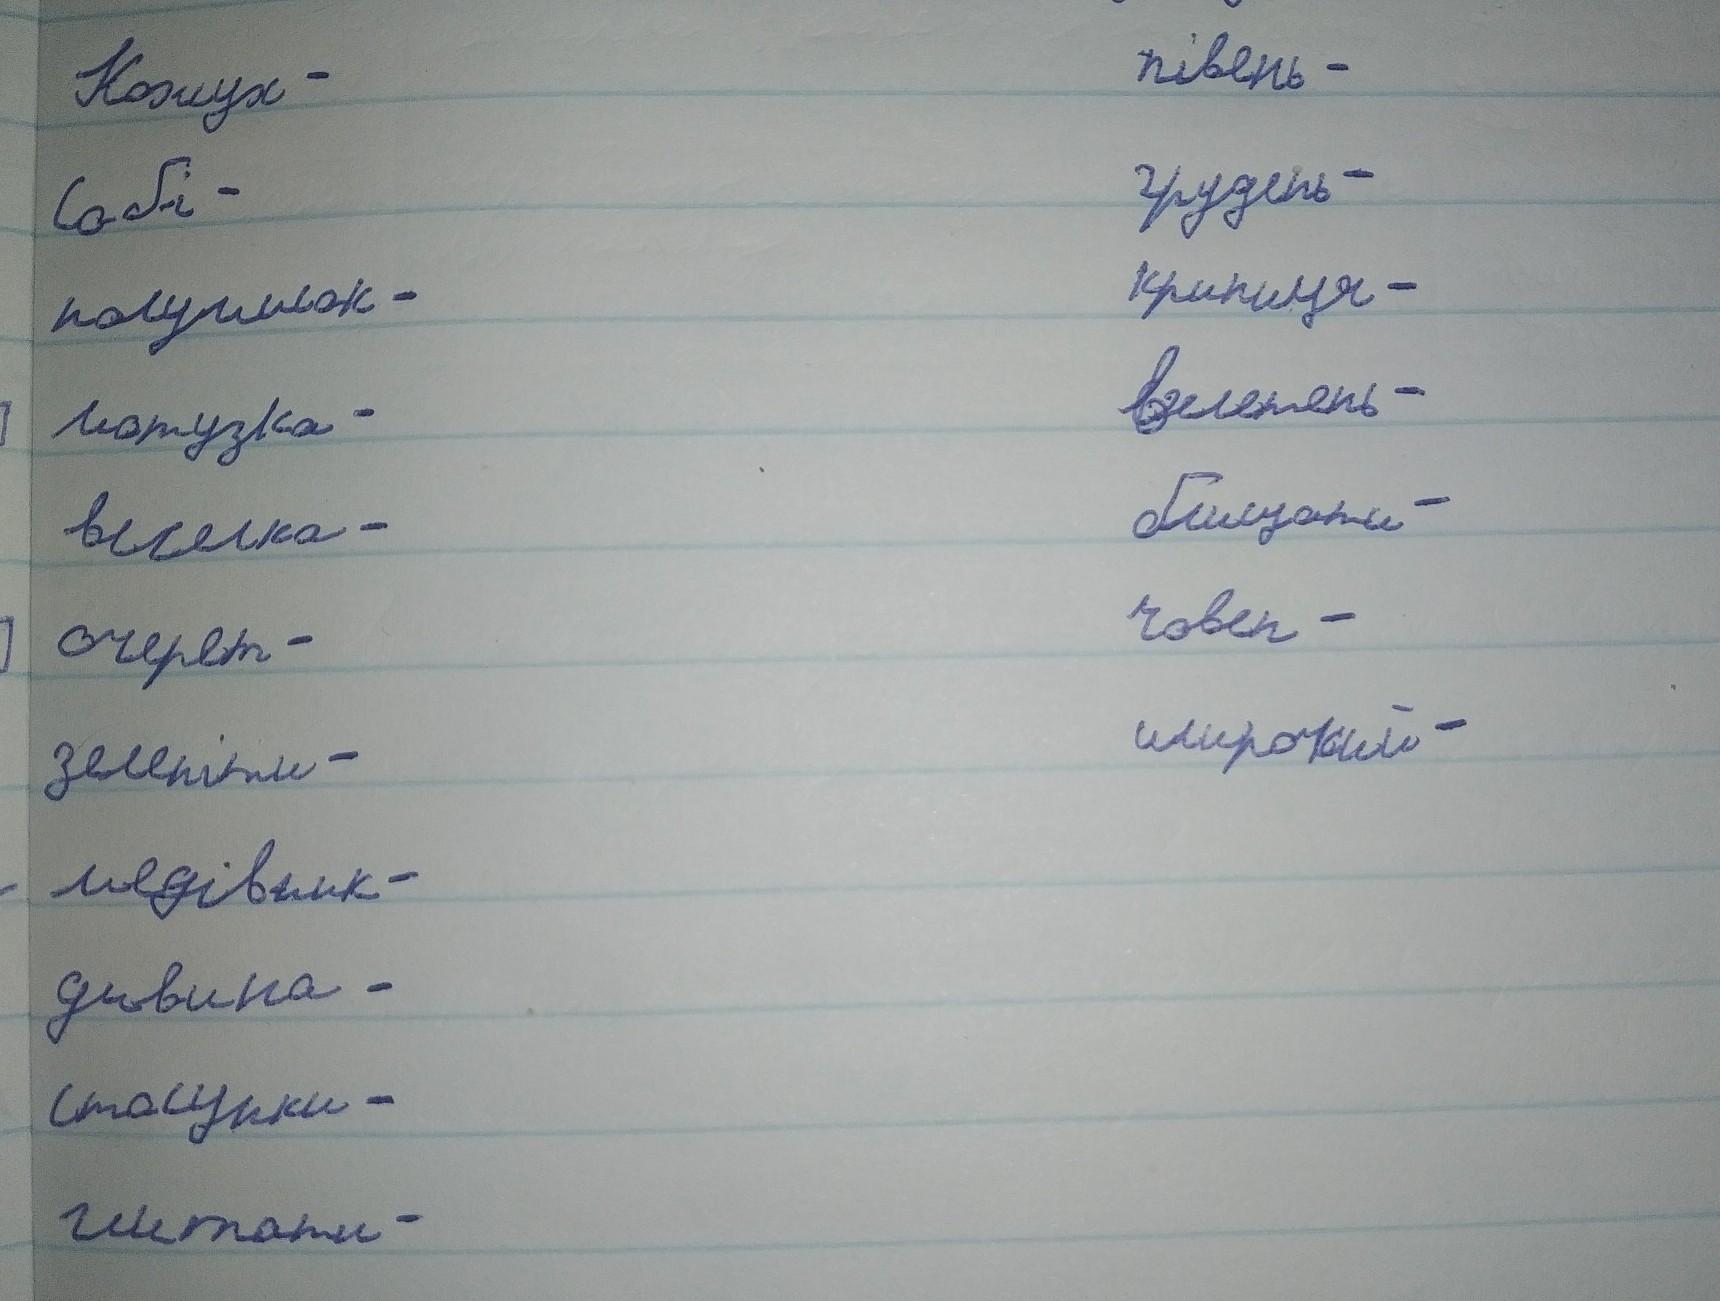 Кожух -
Собі -
полумисок -
мотузка -
веселка -
очерет -
зеленіти -
медівник -
дивина -
стосунки -
глитати -
півень -
грудень -
криниця -
велетень -
блищати -
човен -
широкий -